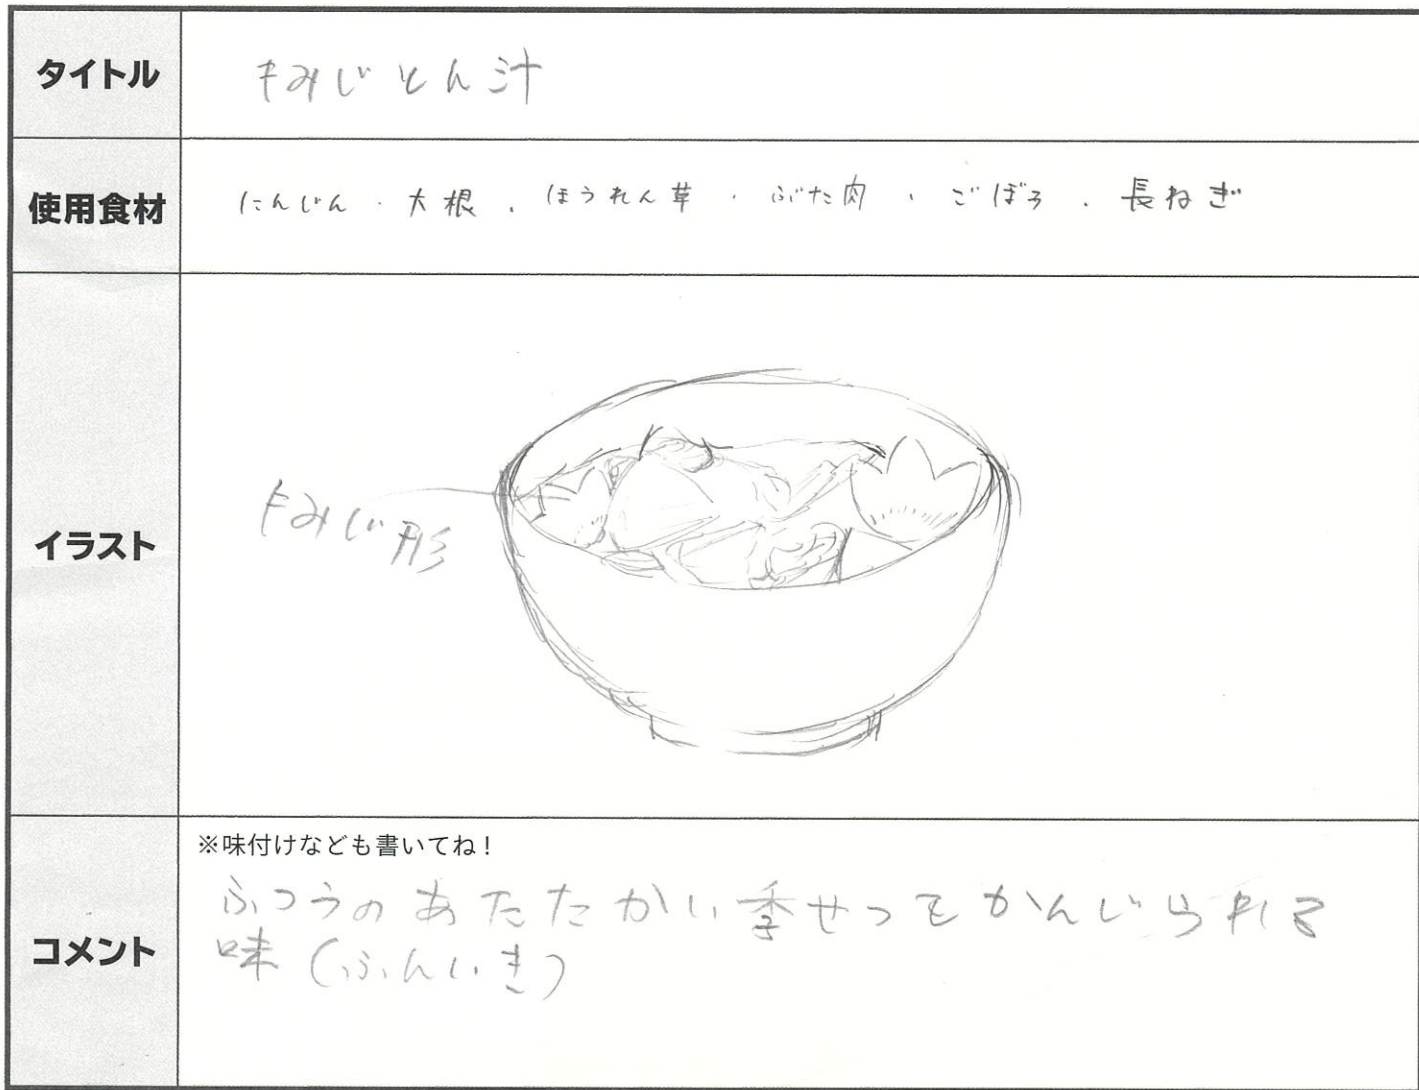 タイトル
もみじとん汁
使用食材
にんじん・大根、ほうれん草・ぶた肉、ごぼう、長ねぎ
イラスト
もみじ形
コメント
※味付けなども書いてね!
ふつうのあたたかい季せつをかんじられる
味(ふんいき)